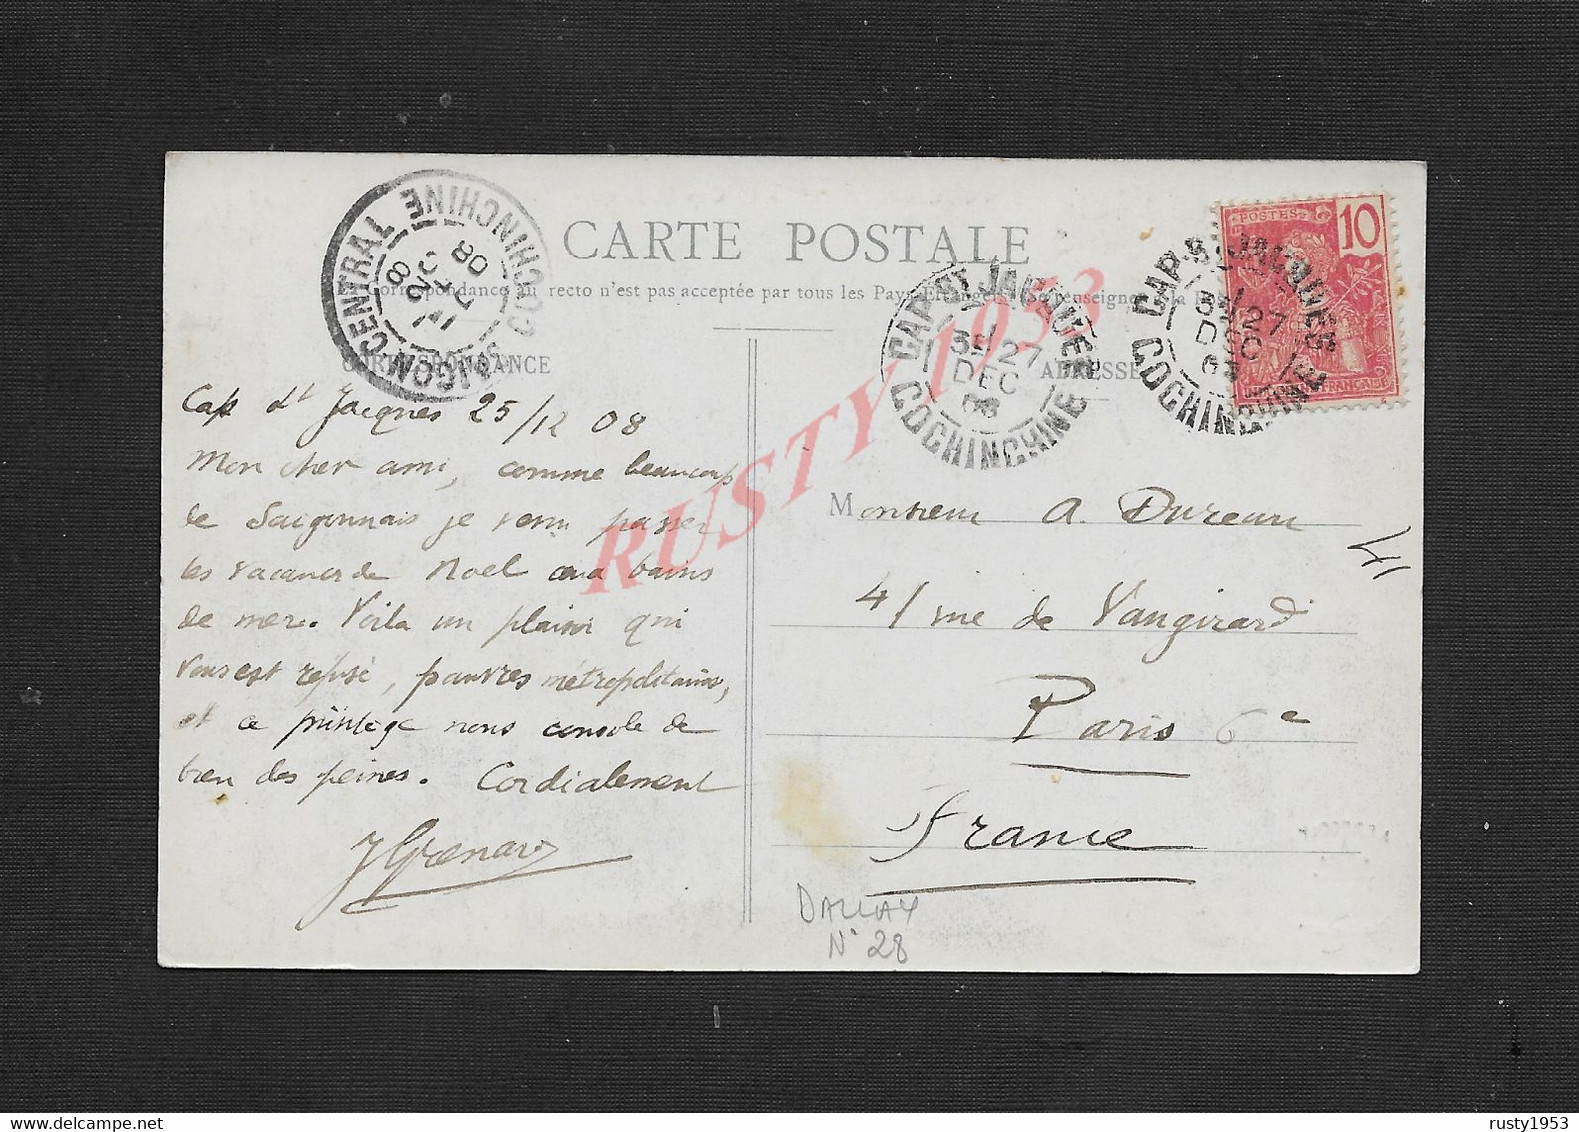 CARTE POSTALE
La Correspondance au recto n'est pas acceptée par tous les Pays Etrangers (Se renseigner à la Poste)
CORRESPONDANCE
ADRESSE
SAIGON CENTRAL COCHINCHINE
28
DEC
08
CAP ST JACQUES
3E 27
DEC
08
COCHINCHINE
CAP ST JACQUES
3E 27
DEC
08
COCHINCHINE
POSTES 10
Cap St Jacques 25/12 08
Mon cher ami, comme beaucoup
de Saigonnais je viens passer
les vacances de Noel aux bains
de mer. Voila un plaisir qui
vous est refusé, pauvres métropolitains,
et ce privilège nous console de
bien des peines. Cordialement
Monsieur A. Dureau
41 rue de Vaugirard
Paris 6e
France
41
DALLAY
N° 28
RUSTY 1953
rusty1953